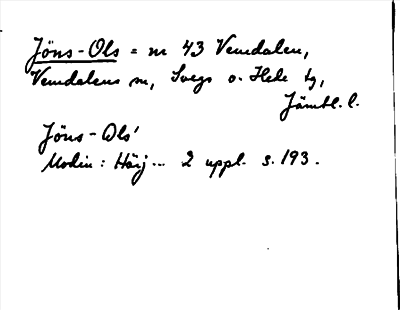 Jöns-Ols = nr 43 Vemdalen,
Vemdalens sn, Svegs o. Hede tg,
Jämtl. l.
Jöns-Ols'
Modin: Härj... 2 uppl. s. 193.